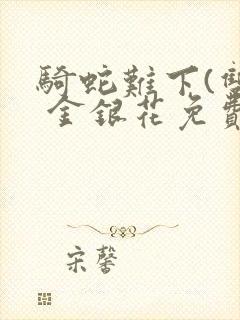 騎蛇難下(雙
金銀花免費
宋馨